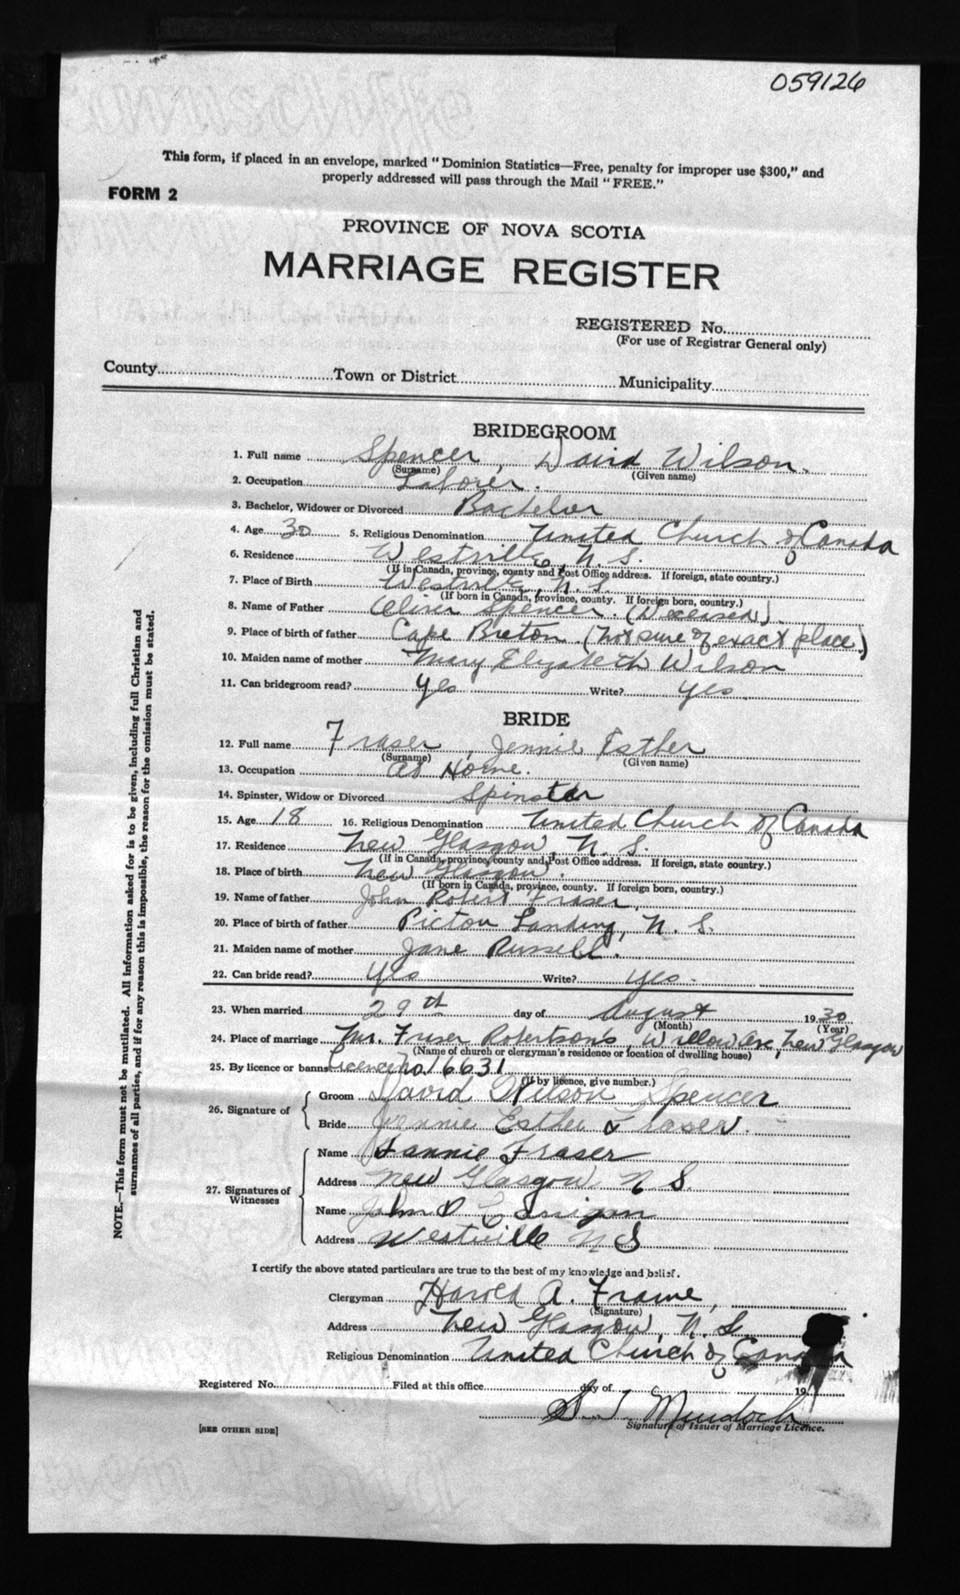 059126
This form, if placed in an envelope, marked "Dominion Statistics—Free, penalty for improper use $300," and
properly addressed will pass through the Mail "FREE."
FORM 2
PROVINCE OF NOVA SCOTIA
MARRIAGE REGISTER
REGISTERED No.
(For use of Registrar General only)
County Town or District Municipality
BRIDEGROOM
1. Full name Spencer, David Wilson.
(Surname) (Given name)
2. Occupation Laborer.
3. Bachelor, Widower or Divorced Bachelor
4. Age 30 5. Religious Denomination United Church of Canada
6. Residence Westville, N. S.
(If in Canada, province, county and Post Office address. If foreign, state country.)
7. Place of Birth Westville, N. S.
(If born in Canada, province, county. If foreign born, country.)
8. Name of Father Oliver Spencer. (Deceised)
9. Place of birth of father Cape Breton (not sure of exact place.)
10. Maiden name of mother Mary Elizabeth Wilson
11. Can bridegroom read? Yes Write? Yes.
BRIDE
12. Full name Fraser, Jennie Esther
(Surname) (Given name)
13. Occupation At Home.
14. Spinster, Widow or Divorced Spinster
15. Age 18 16. Religious Denomination United Church of Canada
17. Residence New Glasgow, N. S.
(If in Canada, province, county and Post Office address. If foreign, state country.)
18. Place of birth New Glasgow.
(If born in Canada, province, county. If foreign born, country.)
19. Name of father John Robert Fraser,
20. Place of birth of father Pictou Landing, N. S.
21. Maiden name of mother Jane Russell.
22. Can bride read? Yes Write? Yes.
23. When married 29th day of August 1930
(Month) (Year)
24. Place of marriage Mr. Fraser Robertson's, Willow Ave, New Glasgow
(Name of church or clergyman's residence or location of dwelling house)
25. By licence or banns Licence No 16631
(If by licence, give number.)
26. Signature of
Groom David Wilson Spencer
Bride Jennie Esther Fraser.
27. Signatures of Witnesses
Name Fannie Fraser
Address New Glasgow N S.
Name John D
Address Westville N S
I certify the above stated particulars are true to the best of my knowledge and belief.
Clergyman Harold A. Frame,
(Signature)
Address New Glasgow, N. S.
Religious Denomination United Church of Canada
Registered No. Filed at this office day of 19
S. J. Murdoch
Signature of Issuer of Marriage Licence.
[SEE OTHER SIDE]
NOTE.—This form must not be mutilated. All information asked for is to be given, including full Christian and
surnames of all parties, and if for any reason this is impossible, the reason for the omission must be stated.